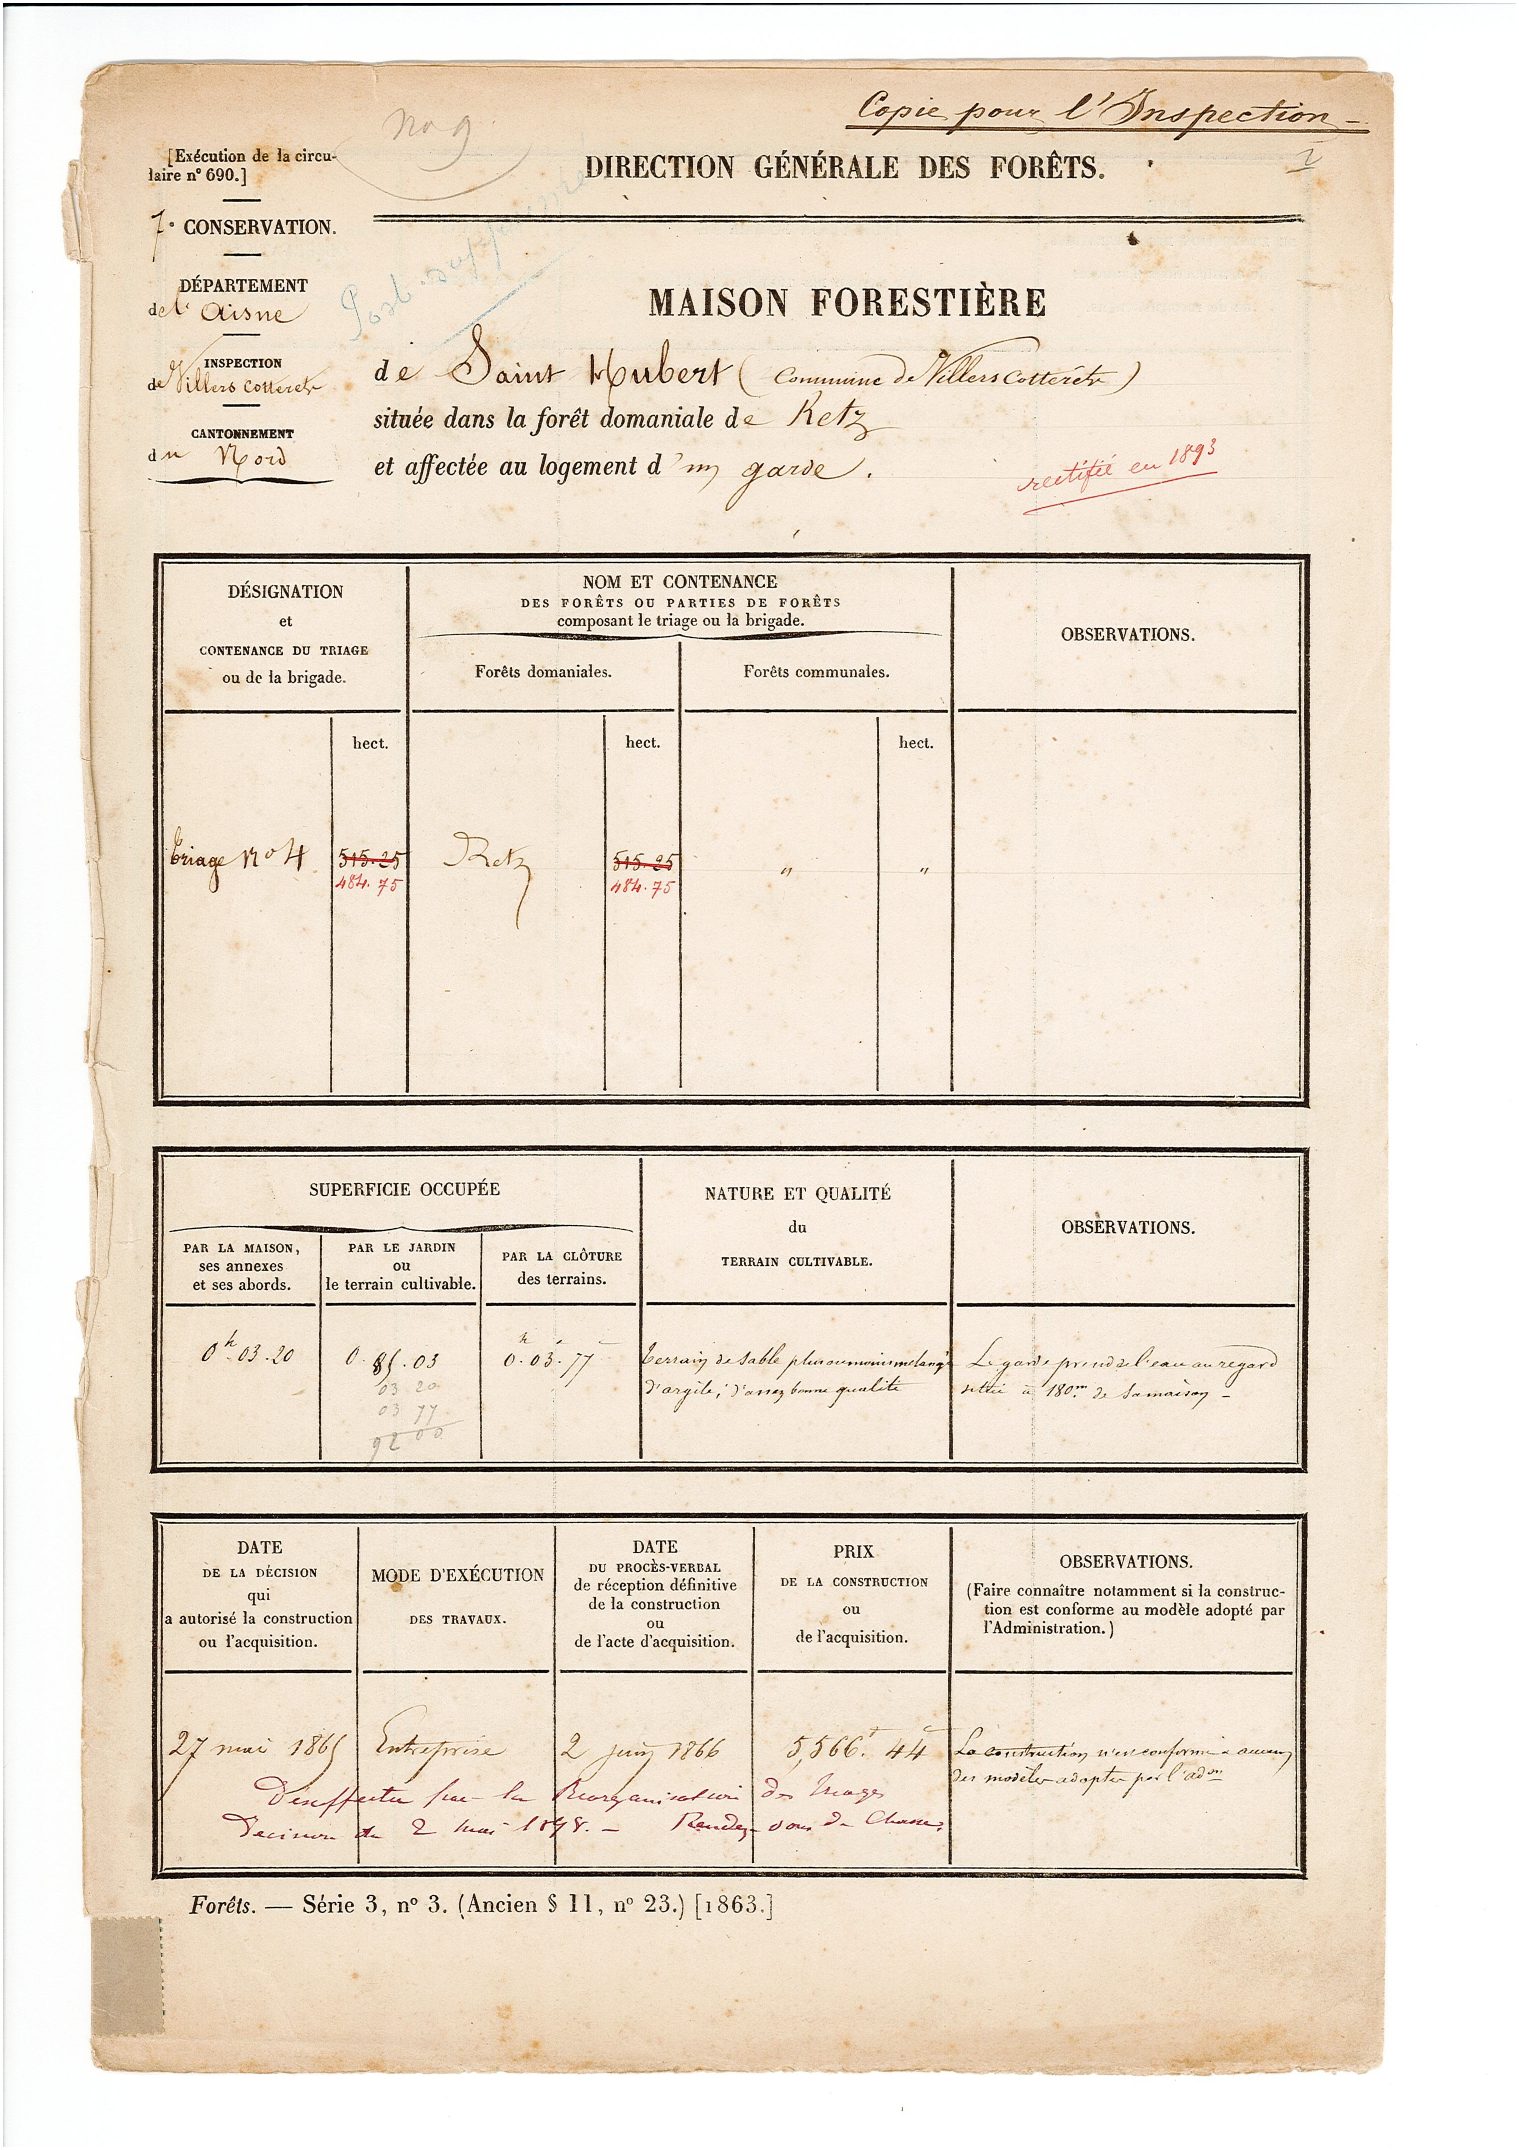 Copie pour l'Inspection
No 9
[Exécution de la circu-
laire n° 690.]
DIRECTION GÉNÉRALE DES FORÊTS.
7e CONSERVATION.
DÉPARTEMENT
de l'Aisne
INSPECTION
de Villers Cotterêts
CANTONNEMENT
du Nord
Poste supprimé
MAISON FORESTIÈRE
de Saint Hubert (Commune de Villers Cotterêts)
située dans la forêt domaniale de Retz
et affectée au logement d'un garde.
rectifié en 1893
DÉSIGNATION
et
CONTENANCE DU TRIAGE
ou de la brigade.
NOM ET CONTENANCE
DES FORÊTS OU PARTIES DE FORÊTS
composant le triage ou la brigade.
Forêts domaniales.
Forêts communales.
OBSERVATIONS.
hect. hect. hect.
Triage No 4 515.25 Retz 515.25 " "
484.75 484.75
SUPERFICIE OCCUPÉE
PAR LA MAISON,
ses annexes
et ses abords.
PAR LE JARDIN
ou
le terrain cultivable.
PAR LA CLÔTURE
des terrains.
NATURE ET QUALITÉ
du
TERRAIN CULTIVABLE.
OBSERVATIONS.
0h.03.20
0.85.03
03 20
03 77
92 00
0h.03.77
Terrain de sable plus ou moins mélangé
d'argile; d'assez bonne qualité
Le garde prend de l'eau au regard
situé à 180m de sa maison -
DATE
DE LA DÉCISION
qui
a autorisé la construction
ou l'acquisition.
MODE D'EXÉCUTION
DES TRAVAUX.
DATE
DU PROCÈS-VERBAL
de réception définitive
de la construction
ou
de l'acte d'acquisition.
PRIX
DE LA CONSTRUCTION
ou
de l'acquisition.
OBSERVATIONS.
(Faire connaître notamment si la construc-
tion est conforme au modèle adopté par
l'Administration.)
27 mai 1865 Entreprise 2 juin 1866 5,566f.44c
La construction n'est conforme à aucun
des modèles adoptés par l'adon
Désaffectée par la Réorganisation des Triages
Décision du 2 Mai 1898. - Rendez-vous de Chasse
Forêts. — Série 3, n° 3. (Ancien § II, n° 23.) [1863.]